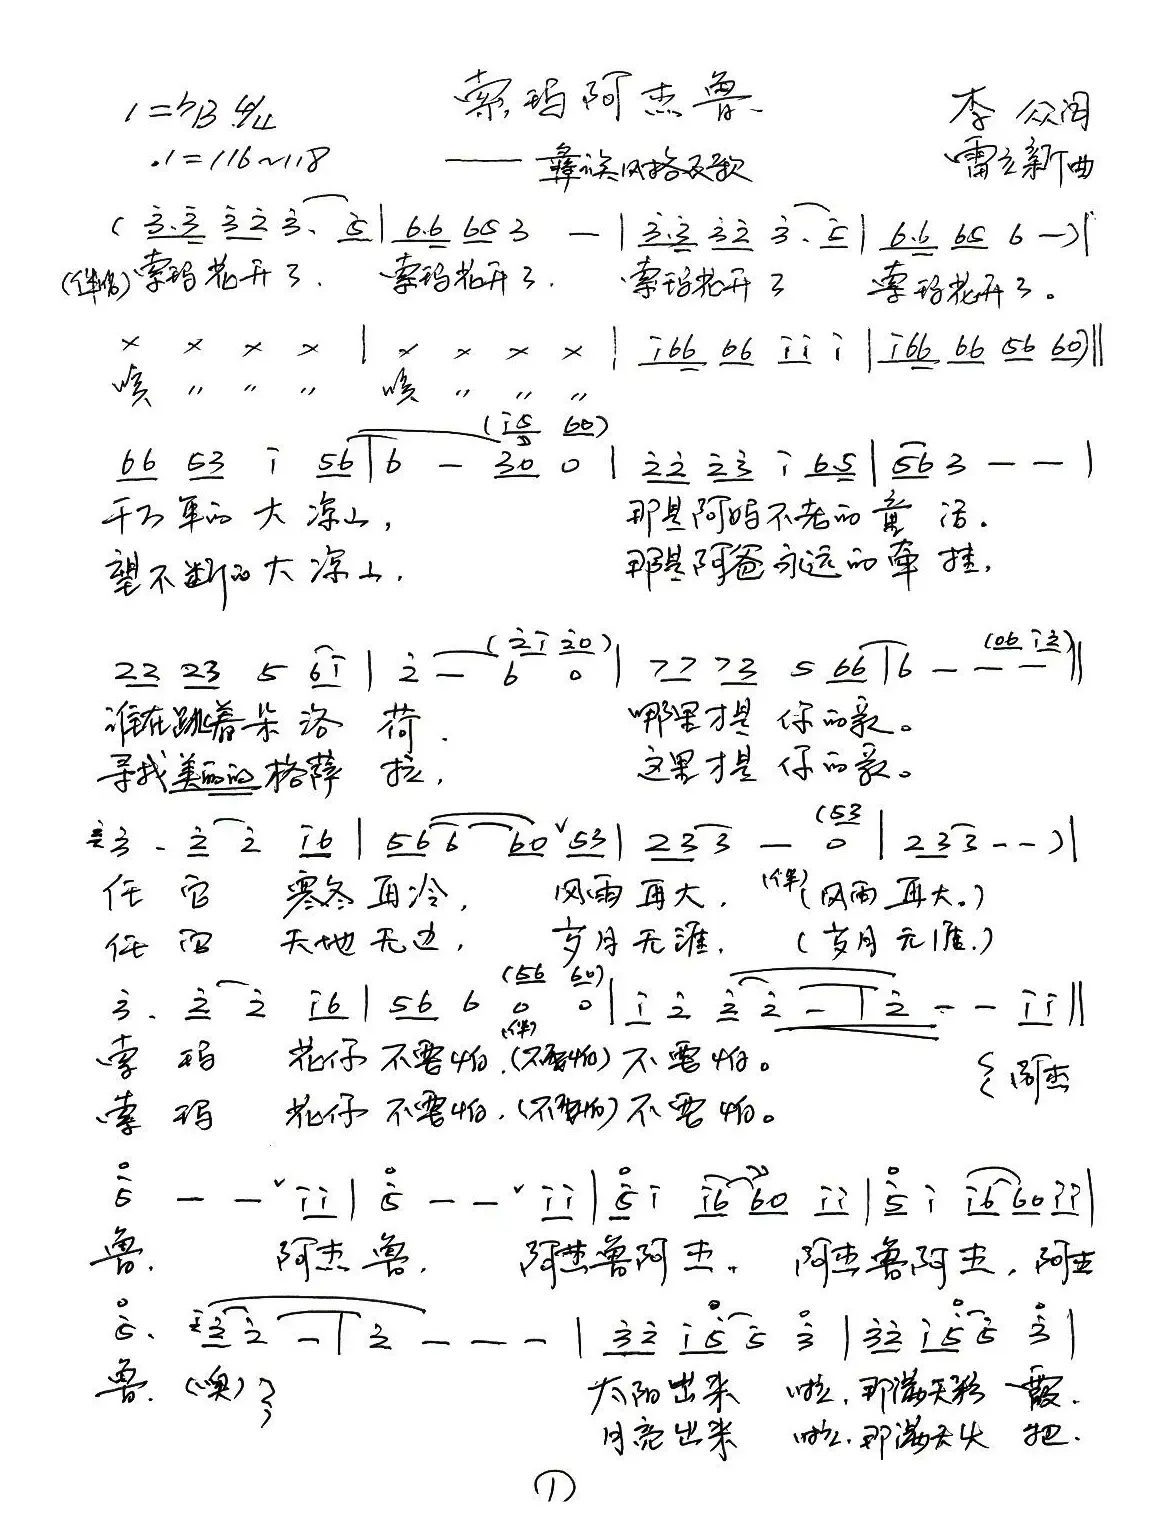 索玛阿杰鲁
1=♭B 4/4
李众 词
♩=116~118
——彝族风格及歌
雷立新曲
( 3̇.3̇ 3̇2̇ 3̇. 5̇ | 6.6 65 3 — | 3̇.3̇ 3̇2̇ 3̇. 5̇ | 6.6 65 6 —)|
(伴唱) 索玛花开了. 索玛花开了. 索玛花开了 索玛花开了。
× × × × | × × × × | i66 66 ii i | i66 66 56 60)‖
嗨 〃 〃 〃 嗨 〃 〃 〃
(i5 60)
66 53 i 56 | 6 — 30 0 | 2̇2̇ 2̇3̇ i 65 | 56 3 — — |
千万年的大凉山, 那是阿妈不老的童话.
望不断的大凉山. 那是阿爸永远的牵挂,
(2̇i 2̇0) (06 i2̇)
22 23 5 6i | 2̇ — 6 0 | 77 73 5 66 | 6 — — — ‖
谁在跳着朵洛荷. 哪里才是你的家。
寻找美丽的格萨拉, 这里才是你的家。
(53
3̇. 2̇ 2̇ i6 | 56 6 60 ∨ 53 | 23 3 — 0 | 23 3 - -)|
任它 寒冬再冷, 风雨再大, (伴)(风雨再大。)
任它 天地无边, 岁月无涯. (岁月无涯.)
(56 60)
3̇. 2̇ 2̇ i6 | 56 6 0 0 | i 2̇ 2̇ 2̇ — | 2̇ - - ii ‖
(伴)
索玛 花仔不要怕.(不要怕)不要怕。 {阿杰
索玛 花仔不要怕.(不要怕)不要怕。
5̇ — — ∨ ii | 5̇ — — ∨ ii | 5̇ i i6 60 ii | 5̇ i i6 60 ii |
鲁. 阿杰鲁. 阿杰鲁阿杰. 阿杰鲁阿杰, 阿杰
5̇. 2̇ 2̇ — | 2̇ — — — | 3̇2̇ i5̇ 5̇ 3̇ | 3̇2̇ i5̇ 5̇ 3̇ |
鲁. (噢)} 太阳出来啦. 那满天彩霞.
月亮出来啦. 那满天火把.
①